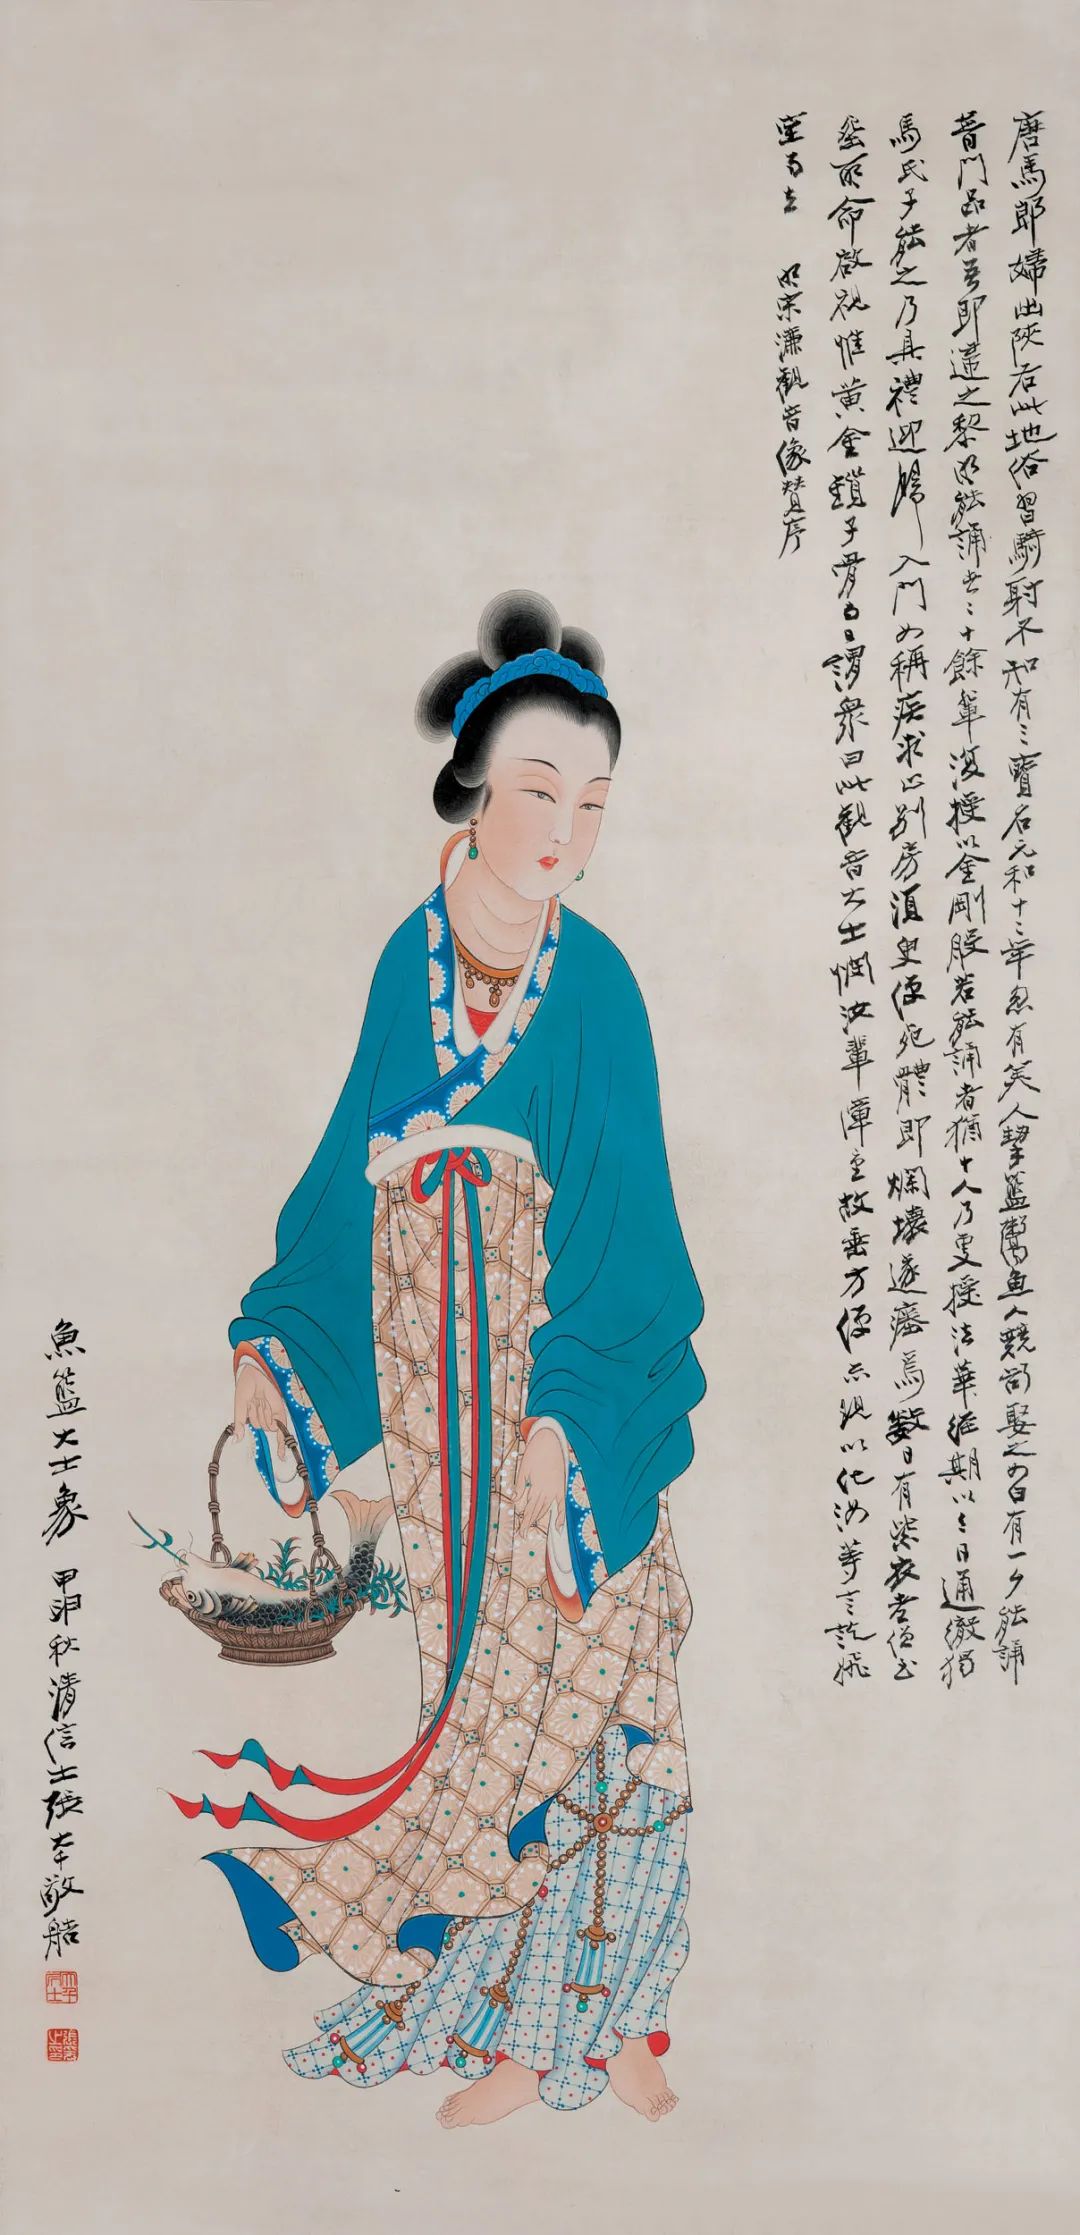 唐馬郎婦出陝右此地俗習騎射不知有三寶名元和十二年忽有美人挈籃鬻魚人競欲娶之女曰有一夕能誦
普門品者吾即適之黎明能誦者二十餘輩復授以金剛般若能誦者猶十人乃更授法華經期以三日通徹獨
馬氏子能之乃具禮迎歸入門女稱疾求止別房須臾便死體即爛壞遂瘞焉數日有紫衣老僧至
瘞所命啟視惟黃金鎖子骨白謂眾曰此觀音大士憫汝輩障重故垂方便示現以化汝等言訖飛
空而去 明宋濂觀音像贊序
魚籃大士象 甲申秋清信士張大千敬造